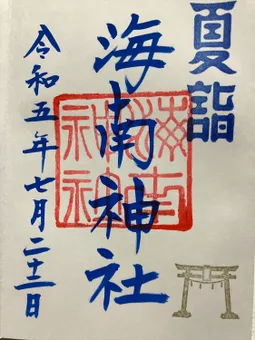 夏詣
海南神社
海南神社
令和五年七月二十二日